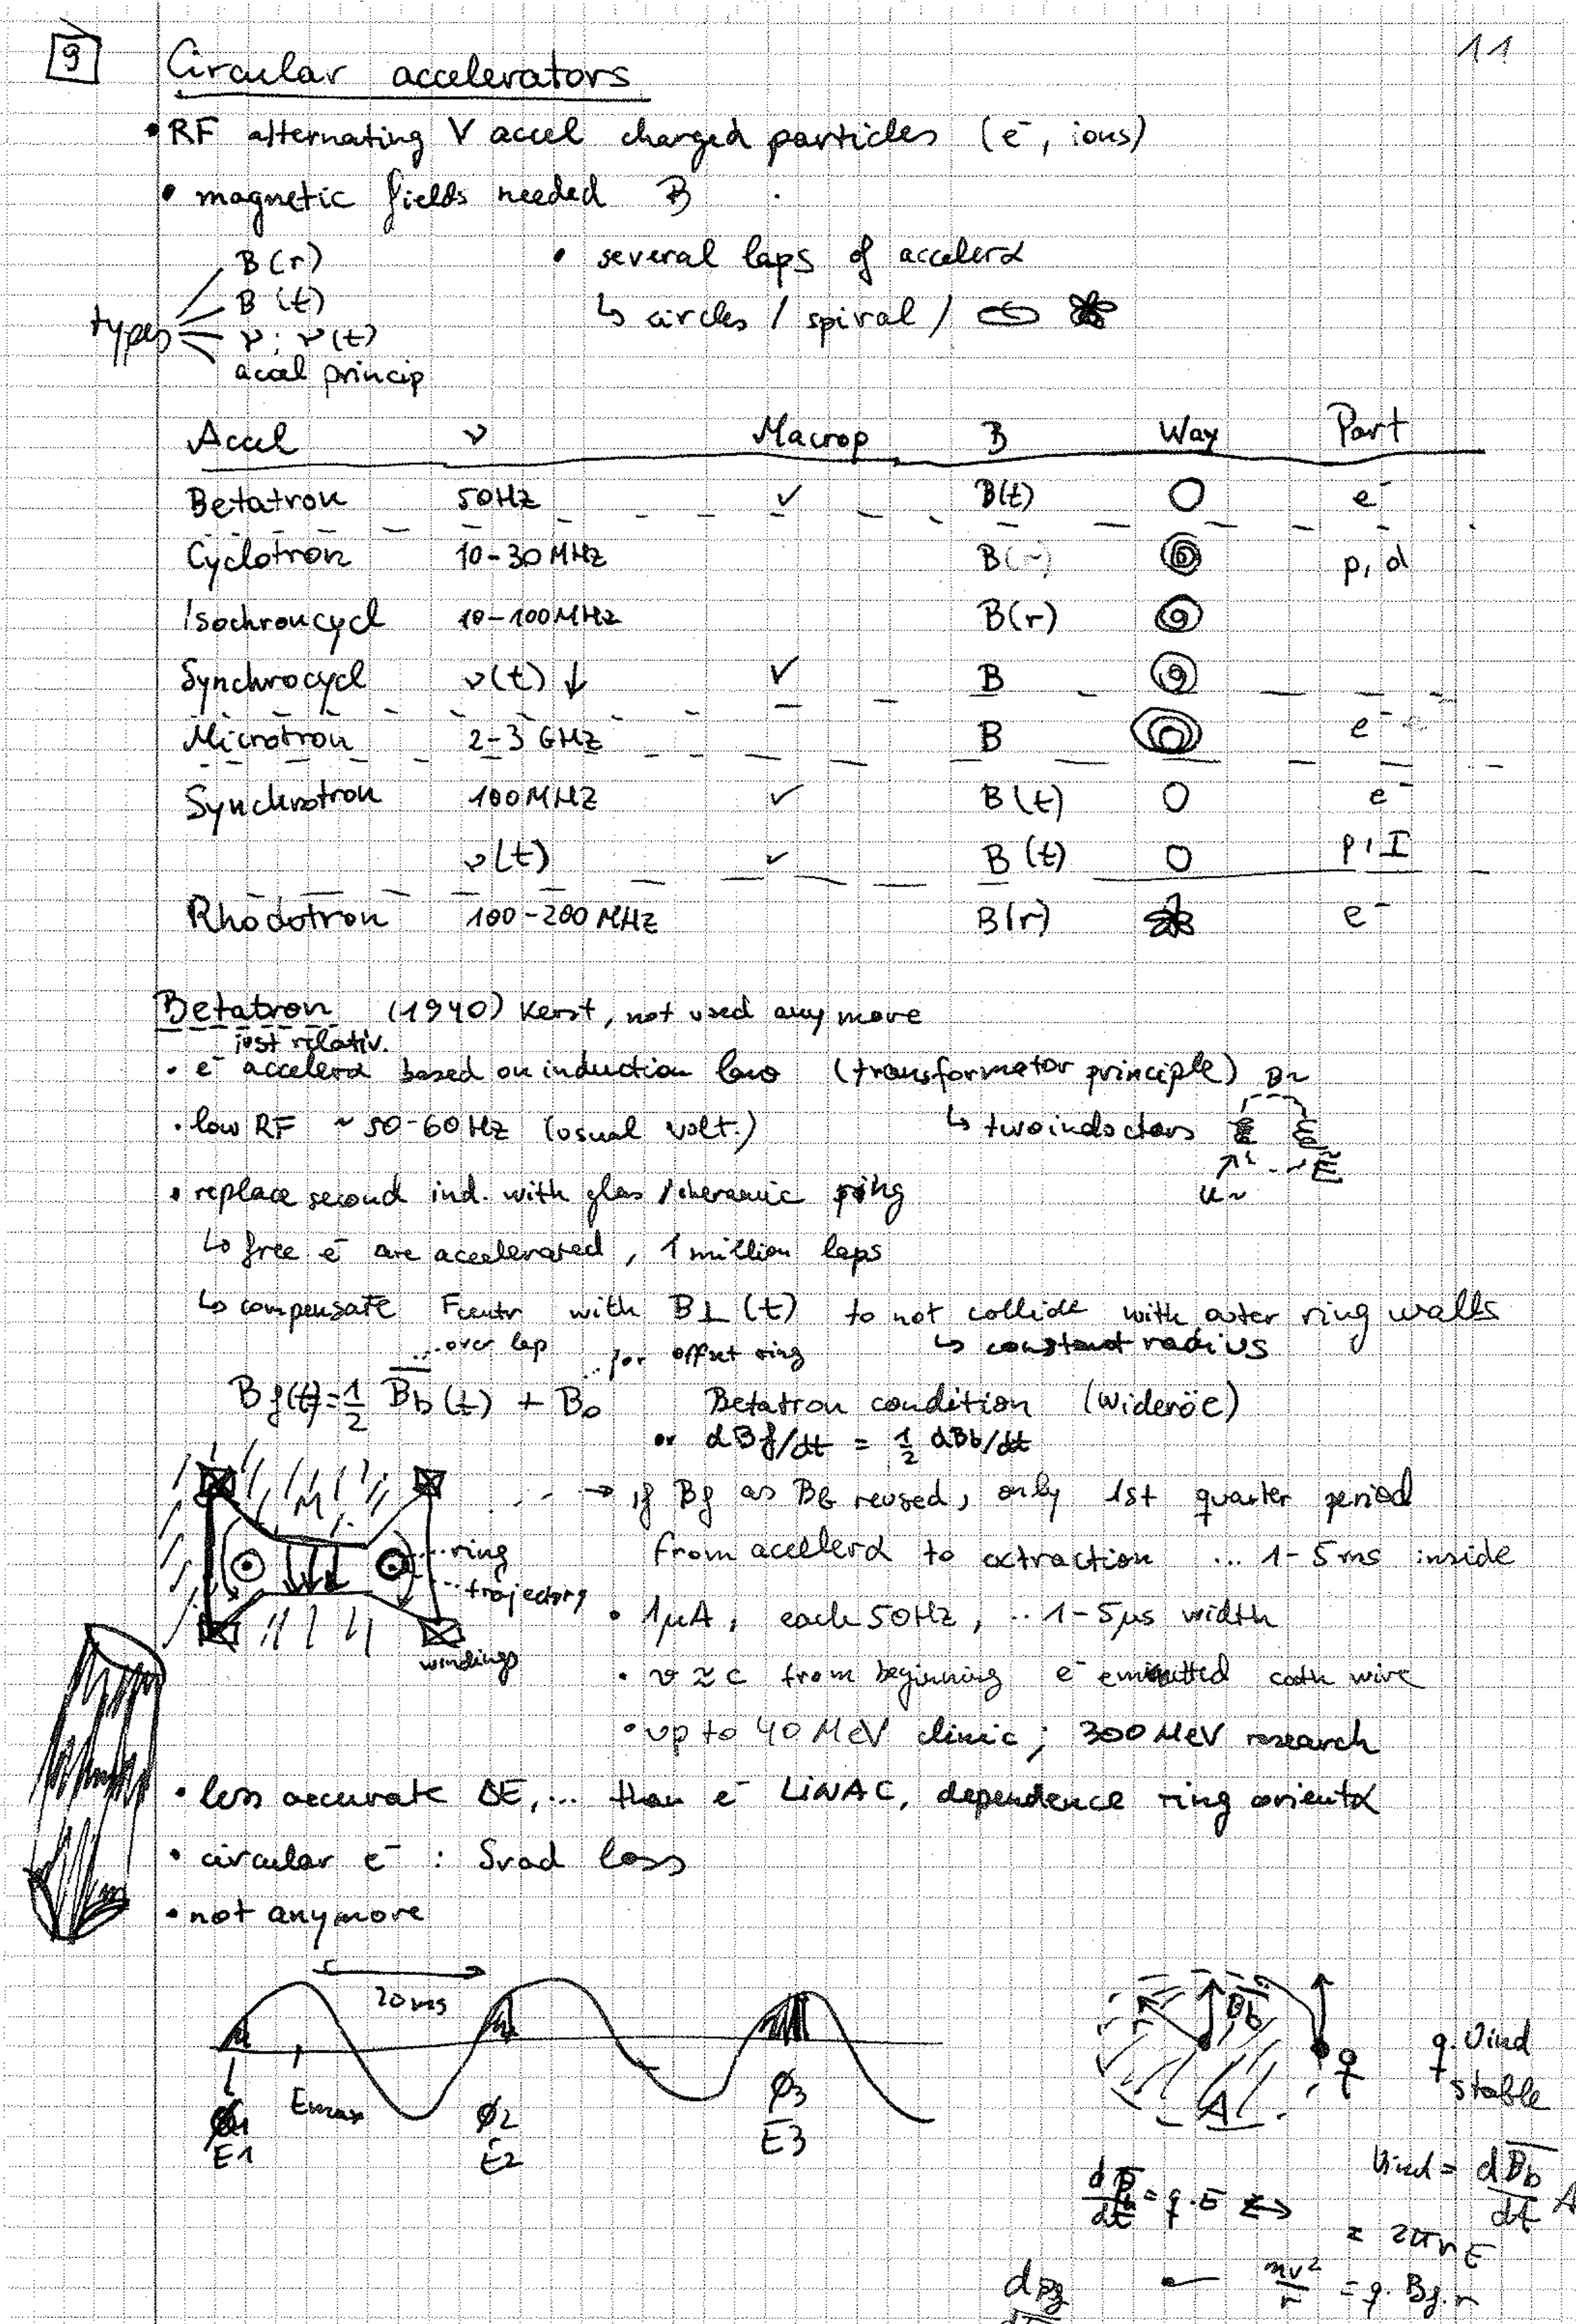 9
11
Circular accelerators
• RF alternating V accel charged particles (e⁻, ions)
• magnetic fields needed B
types
B(r)
B(t)
ν; ν(t)
accel princip
• several laps of accelerα
↳ circles / spiral /
Accel ν Macrop B Way Part
Betatron 50Hz ✓ B(t) e⁻
Cyclotron 10-30MHz B p, d
Isochroncycl 10-100MHz B(r)
Synchrocycl ν(t) ↓ ✓ B
Microtron 2-3 GHz B e⁻
Synchrotron 100MHz ✓ B(t) e⁻
ν(t) ✓ B(t) p, I
Rhodotron 100-200 MHz B(r) e⁻
Betatron (1940) Kerst, not used any more
just relativ.
• e⁻ accelerα based on induction law (transformator principle)
B~
• low RF ~50-60Hz (usual volt.)
↳ two inductors
E
U~
• replace second ind. with glas /cheramic ring
↳ free e⁻ are accelerated, 1 million laps
↳ compensate Fcentr with B⊥(t) to not collide with outer ring walls
...over lap ...for offset ring ↳ constant radius
Bf(t)=1/2 Bb(t) + B0 Betatron condition (Wideröe)
or dBf/dt = 1/2 dBb/dt
→ if Bf as Bb reused, only 1st quarter period
from accellerα to extraction ... 1-5ms inside
...ring
...trajectory
windings
• 1µA, each 50Hz, .. 1-5µs width
• v≈c from beginning e⁻ emitted cath wire
• up to 40 MeV clinic; 300 MeV research
• less accurate ΔE,... than e⁻ LiNAC, dependence ring orientα
• circular e⁻ : Srad loss
• not anymore
20ms
E1
Emax
ø2
E2
ø3
E3
Bb
A
q
q.Uind
stable
Uind = dBb/dt A
= 2πr E
dp/dt = q.E ↔
mv²/r = q. Bf.r